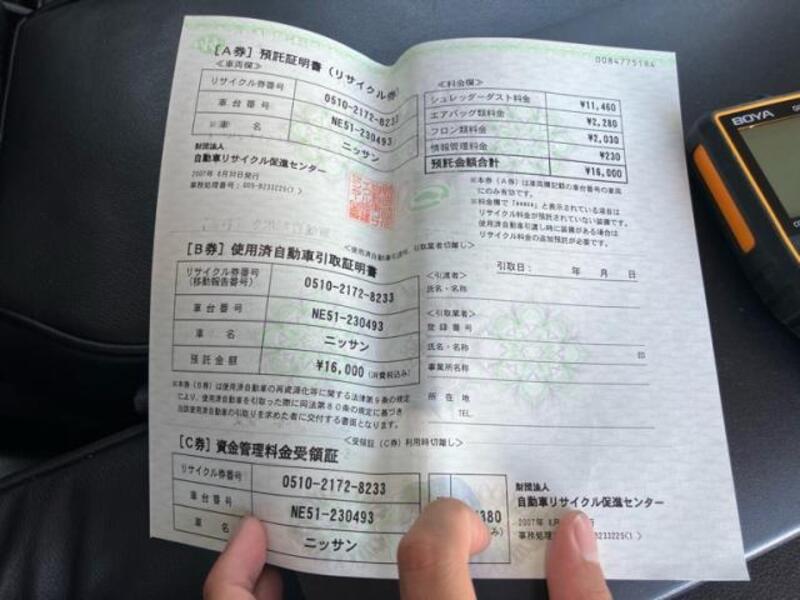 0084775184
[A券] 預託証明書 (リサイクル券
＜車両欄＞
リサイクル券番号 0510-2172-8233
車台番号 NE51-230493
※車 名 ニッサン
財団法人
自動車リサイクル促進センター
2007年 8月30日発行
＜料金欄＞
シュレッダーダスト料金 ¥11,460
エアバッグ類料金 ¥2,280
フロン類料金 ¥2,030
情報管理料金 ¥230
預託金額合計 ¥16,000
※本券（A券）は車両欄記載の車台番号の車両
にのみ有効です。
と表示されている場合は
リサイクル料金が預託されていない装備です。
使用済自動車引渡し時に装備がある場合は
リサイクル料金の追加預託が必要です。
[B券] 使用済自動車引取証明書
リサイクル券番号
(移動報告番号) 0510-2172-8233
車台番号 NE51-230493
車 名 ニッサン
預託金額 ¥16,000 (消費税込み)
※本券（B券）は使用済自動車の再資源化等に関する法律第9条の規定
により、使用済自動車を引取った際に同法第80条の規定に基づき
当該使用済自動車の引取りを求めた者に交付する書面となります。
引取日： 年 月 日
＜引渡者＞
氏名・名称
＜引取業者＞
登録番号
氏名・名称 印
事業所名称
所在地
TEL.
＜受領証（C券）利用時切離し＞
[C券] 資金管理料金受領証
リサイクル券番号 0510-2172-8233
車台番号 NE51-230493
車 名 ニッサン
380
財団法人
自動車リサイクル促進センター
2007年
BOYA